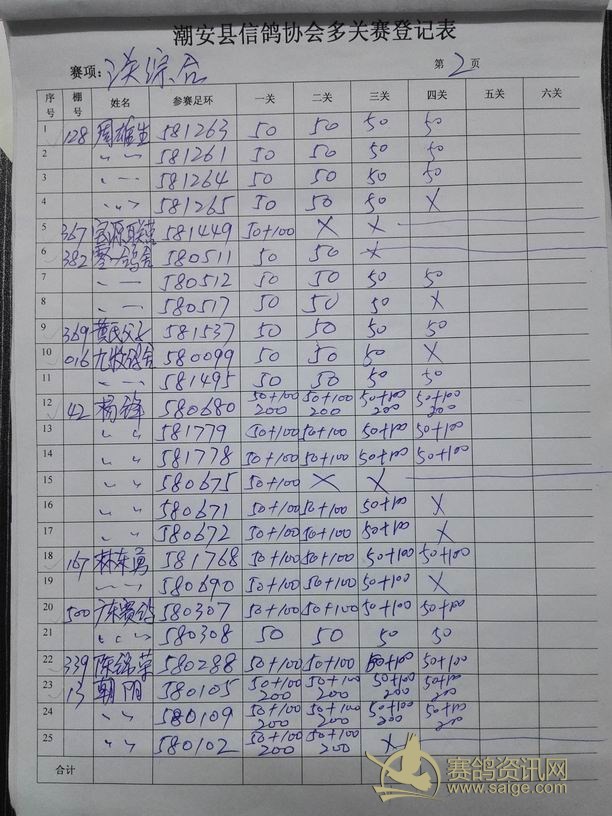 潮安县信鸽协会多关赛登记表
赛项: 关综合 第2页
序号 棚号 姓名 参赛足环 一关 二关 三关 四关 五关 六关
1 128 周雄生 581263 50 50 50 50
2 〃 〃 581261 50 50 50 50
3 〃 581264 50 50 50 50
4 〃 〃 581265 50 50 50 X
5 367 581449 50+100 X X
6 382 580511 50 50 X
7 〃 580512 50 50 50 50
8 〃 580517 50 50 50 X
9 369 黄氏父子 581537 50 50 50 50
10 016 九牧鸽舍 580099 50 50 50 X
11 〃 581495 50 50 50 50
12 42 杨锋 580680 50+100 200 50+100 200 50+100 200 50+100 200
13 〃 〃 581779 50+100 50+100 50+100 50+100
14 〃 〃 581778 50+100 50+100 50+100 50+100
15 〃 〃 580675 50+100 X X
16 〃 〃 580671 50+100 50+100 50+100 X
17 〃 〃 580672 50+100 50+100 50+100 X
18 167 林东勇 581768 50+100 50+100 50+100 50+100
19 〃 〃 580690 50+100 50+100 50+100 X
20 500 广东赛鸽 580307 50+100 50+100 50+100 50+100
21 〃 〃 580308 50 50 50 50
22 339 陈锦荣 580288 50+100 50+100 50+100 50+100
23 13 朝阳 580105 50+100 200 50+100 200 50+100 200 50+100 200
24 〃 〃 580109 50+100 200 50+100 200 50+100 200 50+100 200
25 〃 〃 580102 50+100 200 50+100 200 X
合计
赛鸽资讯网
www.saige.com